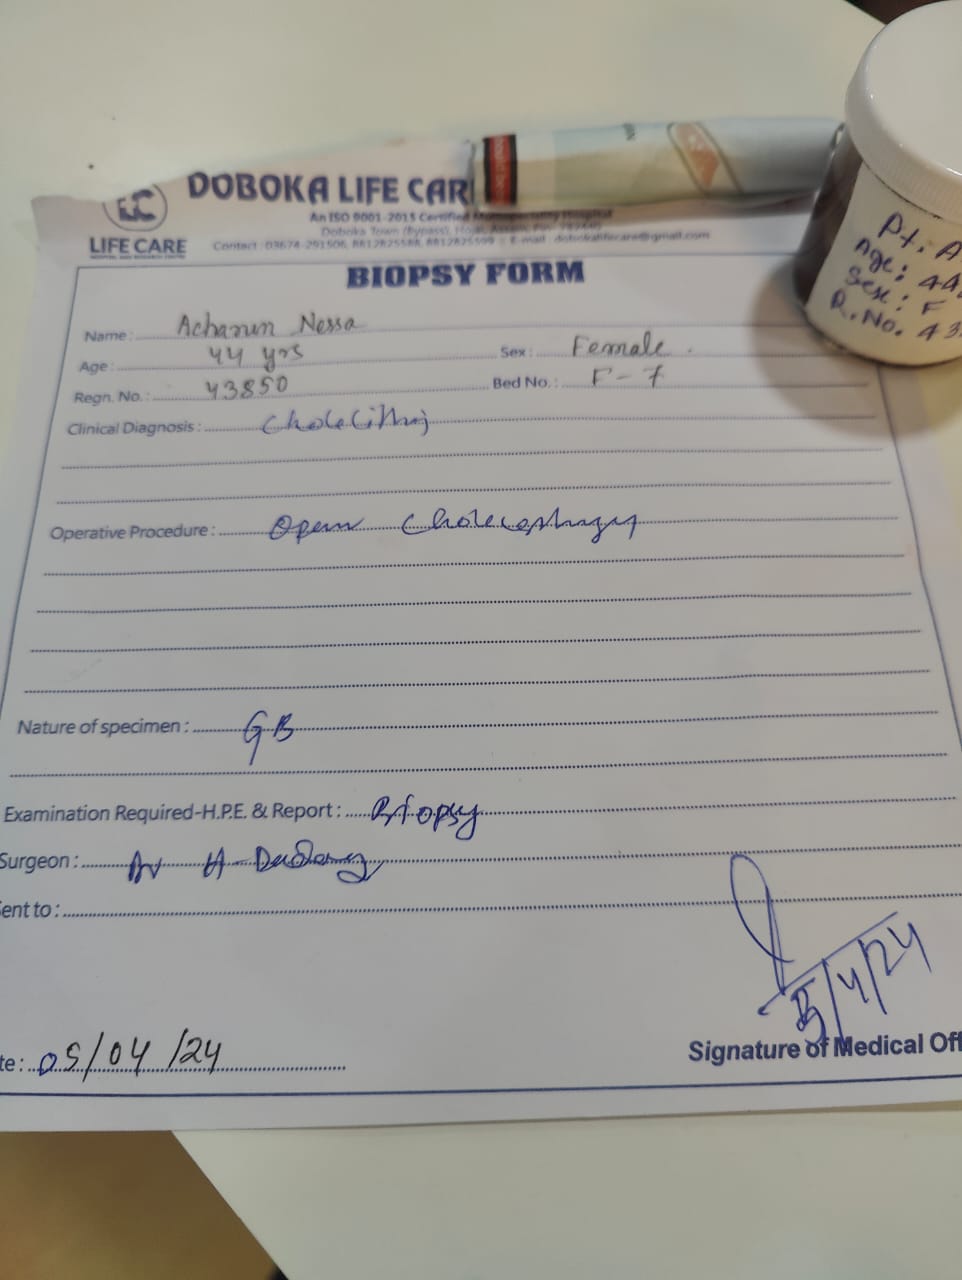 DOBOKA LIFE CAR
LC
LIFE CARE
An ISO 9001-2015 Certified Multispeciality Hospital
Doboka Town (Bypass), Hojai, Assam, Pin- 782440
Contact : 03674-291506, 8812825588, 8812825599 :: E-mail : dobokalifecare@gmail.com
BIOPSY FORM
Name : Acharun Nessa
Age : 44 yrs Sex : Female .
Regn. No. : 43850 Bed No. : F-7
Clinical Diagnosis :
Operative Procedure : Open
Nature of specimen : GB
Examination Required-H.P.E. & Report : Biopsy
Surgeon : Dr H-
ent to :
5/4/24
te : 05/04/24
Signature of Medical Off
Pt. A
Age: 44
Sex: F
R.No. 43